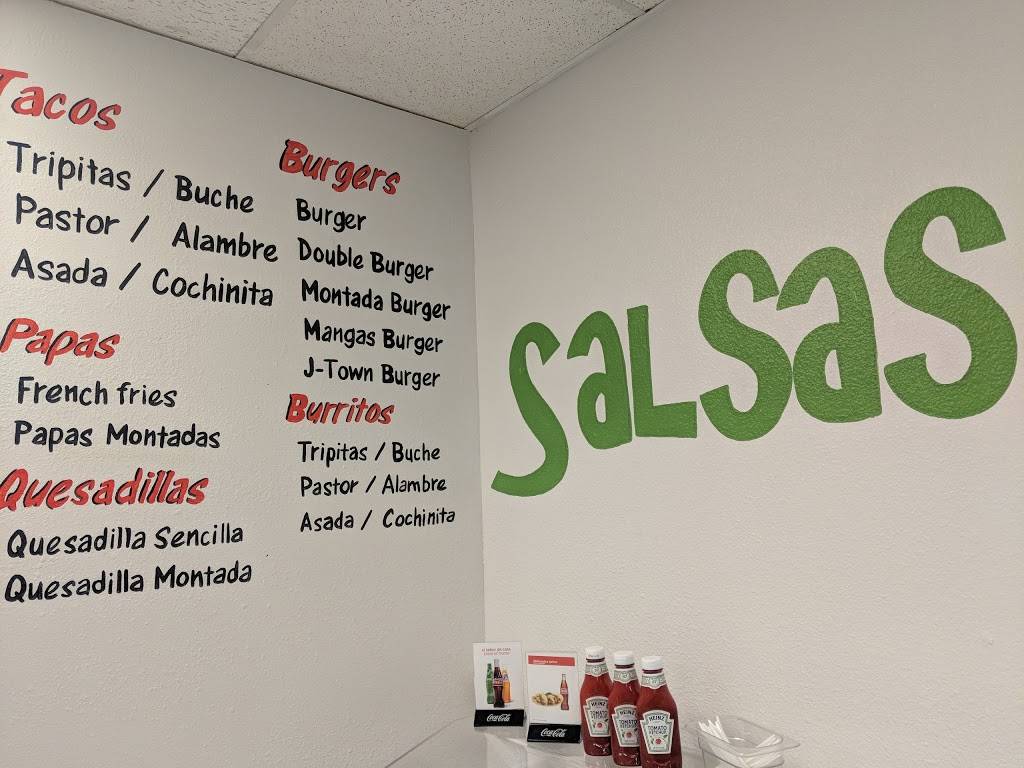 Tacos
Tripitas / Buche
Pastor / Alambre
Asada / Cochinita
Papas
French fries
Papas Montadas
Quesadillas
Quesadilla Sencilla
Quesadilla Montada
Burgers
Burger
Double Burger
Montada Burger
Mangas Burger
J-Town Burger
Burritos
Tripitas / Buche
Pastor / Alambre
Asada / Cochinita
SaLSaS
Coca-Cola
Coca-Cola
HEINZ
TOMATO
KETCHUP
HEINZ
TOMATO
KETCHUP
HEINZ
TOMATO
KETCHUP